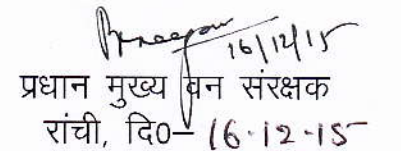 16/12/15
प्रधान मुख्य वन संरक्षक
रांची, दि0– 16-12-15